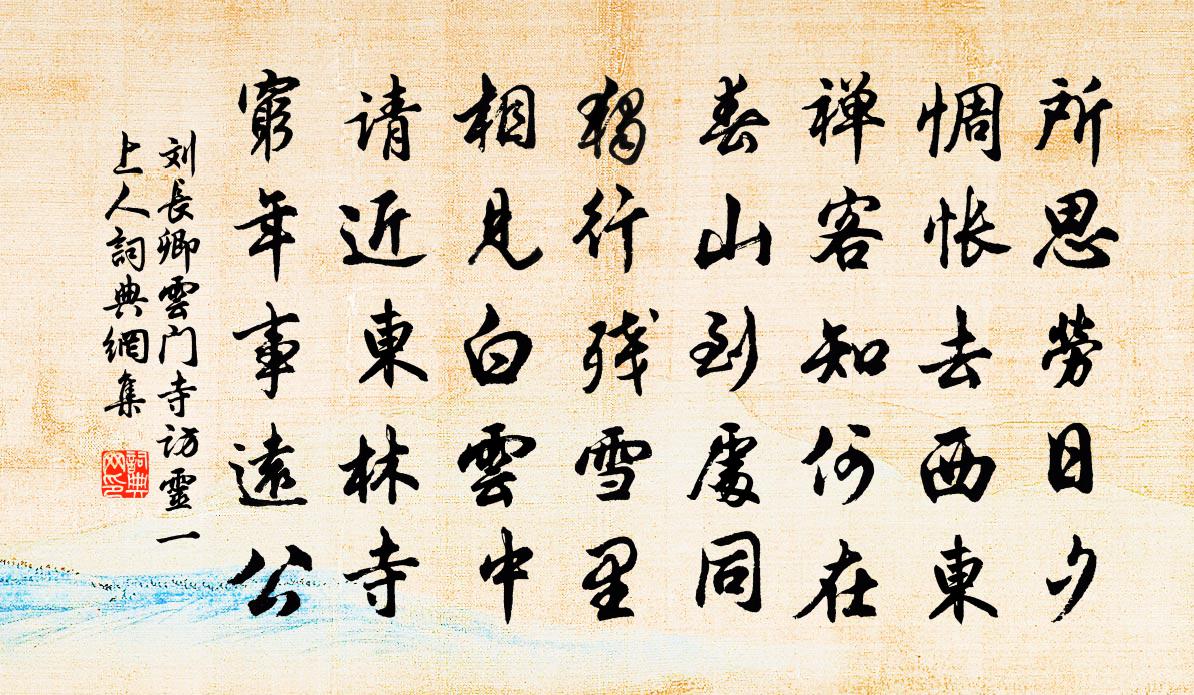 所思劳日夕
惆怅去西東
禅客知何在
春山到處同
獨行残雪里
相見白雲中
请近東林寺
窮年事遠公
刘長卿雲门寺访靈一
上人詞典網集
詞典网印